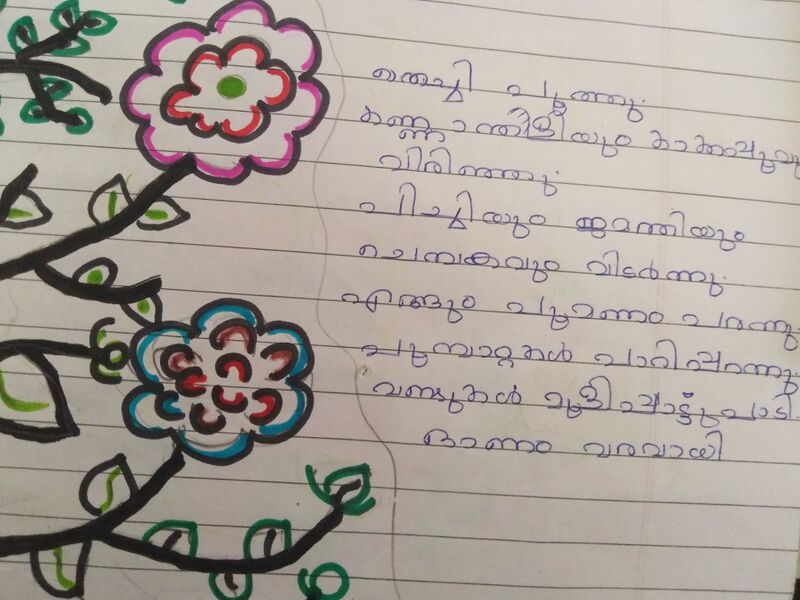 തെച്ചി പൂത്തു.
കണ്ണാന്തളിയും കാക്കപ്പൂവും
വിരിഞ്ഞു.
പിച്ചിയും ജമന്തിയും
ചെമ്പകവും വിടർന്നു.
എങ്ങും പൂമണം പരന്നു.
പൂമ്പാറ്റകൾ പാറിപ്പറന്നു.
വണ്ടുകൾ മൂളിപ്പാട്ടു പാടി.
ഓണം വരവായി